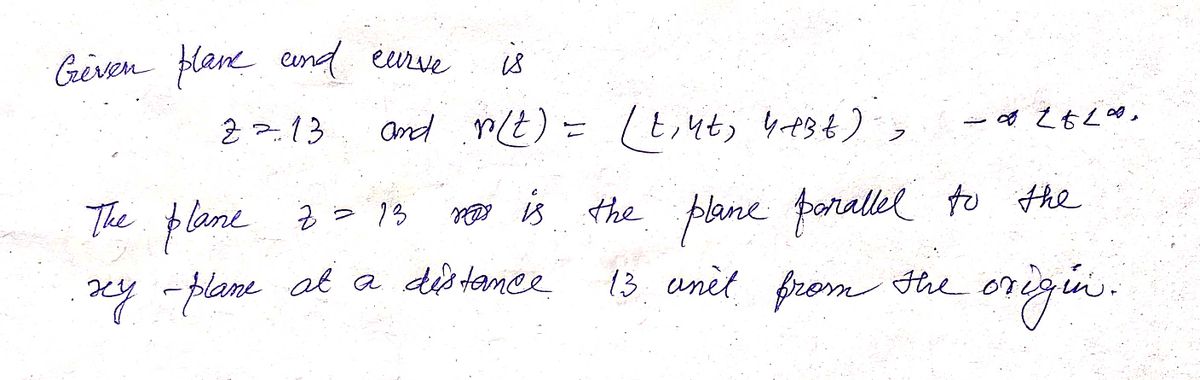 Given plane and curve is
z = 13 and r(t) = (t, 4t, 4+3t), -∞ < t < ∞.
The plane z = 13 is the plane parallel to the
xy-plane at a distance 13 unit from the origin.